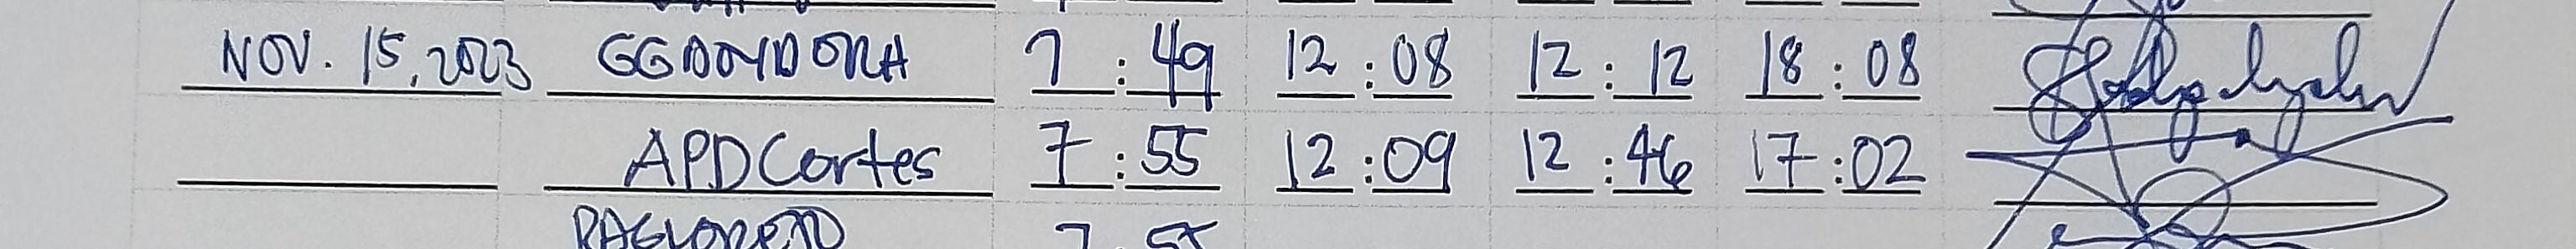 NOV. 15, 2023 GGDONDONRA 7:49 12:08 12:12 18:08
APDCortes 7:55 12:09 12:46 17:02
7:55